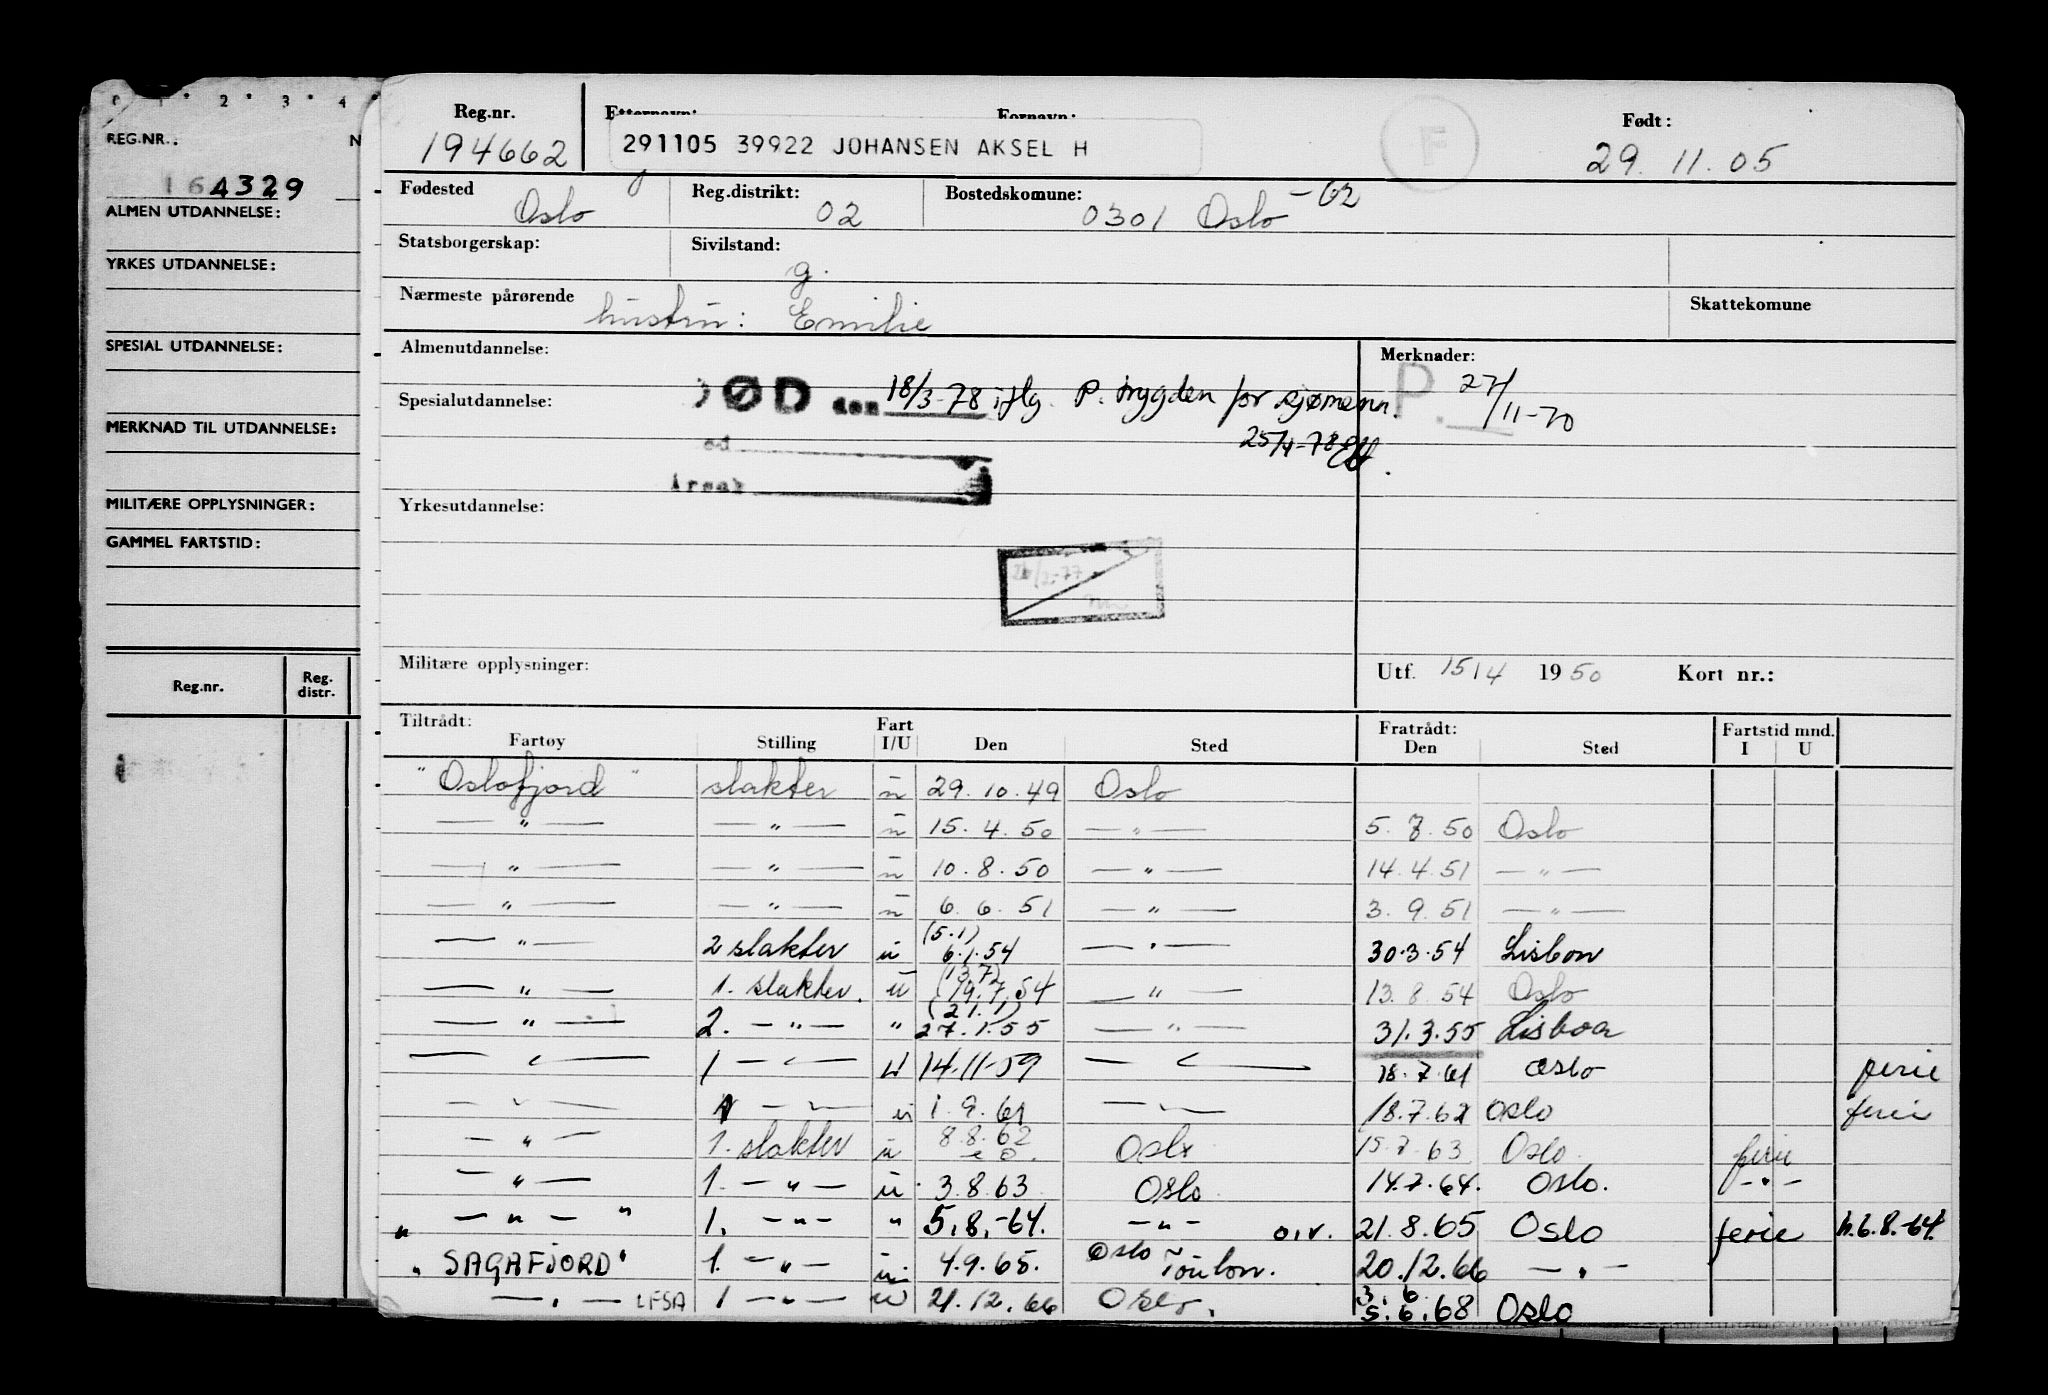 0 1 2 3 4
REG.NR.: N
164329
ALMEN UTDANNELSE:
YRKES UTDANNELSE:
SPESIAL UTDANNELSE:
MERKNAD TIL UTDANNELSE:
MILITÆRE OPPLYSNINGER:
GAMMEL FARTSTID:
Reg.nr. Reg. distr.
Reg.nr. Etternavn: Fornavn: F Født:
194662 291105 39922 JOHANSEN AKSEL H 29.11.05
Fødested Oslo Reg.distrikt: 02 Bostedskomune: 0301 Oslo -62
Statsborgerskap: Sivilstand: g.
Nærmeste pårørende hustru: Emilie Skattekomune
Almenutdannelse: Merknader:
ØD den 18/3-78 iflg. P. trygden for sjømenn. P. 27/11-70
Spesialutdannelse:
25/4-78
ed
Årsak
Yrkesutdannelse:
Militære opplysninger: Utf. 15/4 1950 Kort nr.:
Tiltrådt: Fart Fratrådt: Fartstid mnd.
Fartøy Stilling I/U Den Sted Den Sted I U
"Oslofjord" slakter u 29.10.49 Oslo
— " — — " — u 15.4.50 — " — 5.7.50 Oslo
— " — — " — u 10.8.50 — " — 14.4.51 — " —
— " — — " — u 6.6.51 — " — 3.9.51 — " —
— " — 2 slakter u (5.1) 6.1.54 — " — 30.3.54 Lisbon
— " — 1. slakter. u (13.7) (19.7.54 — " — 13.8.54 Oslo
— " — 2. — " — " (21.1) 27.1.55 — " — 31.3.55 Lisboa
— " — 1 — " — U 14.11-59 — " — 18.7.61 Oslo ferie
— " — 1 — " — u 1.9.61 — " — 18.7.62 Oslo ferie
— " — 1. slakter u 8.8.62 Oslo 15.7.63 Oslo ferie
— " — 1. — " — u 3.8.63 Oslo 14.7.64. Oslo. — " —
" — " — " 1. — " — " 5.8.-64. — " — o.v. 21.8.65 Oslo ferie h.6.8.-64.
"SAGAFJORD" 1. — " — u 4.9.65. Oslo Toulon. 20.12.66 — " —
— " — LFSA 1 — " — u 21.12.66 Oslo. 3.6 5.6.68 Oslo